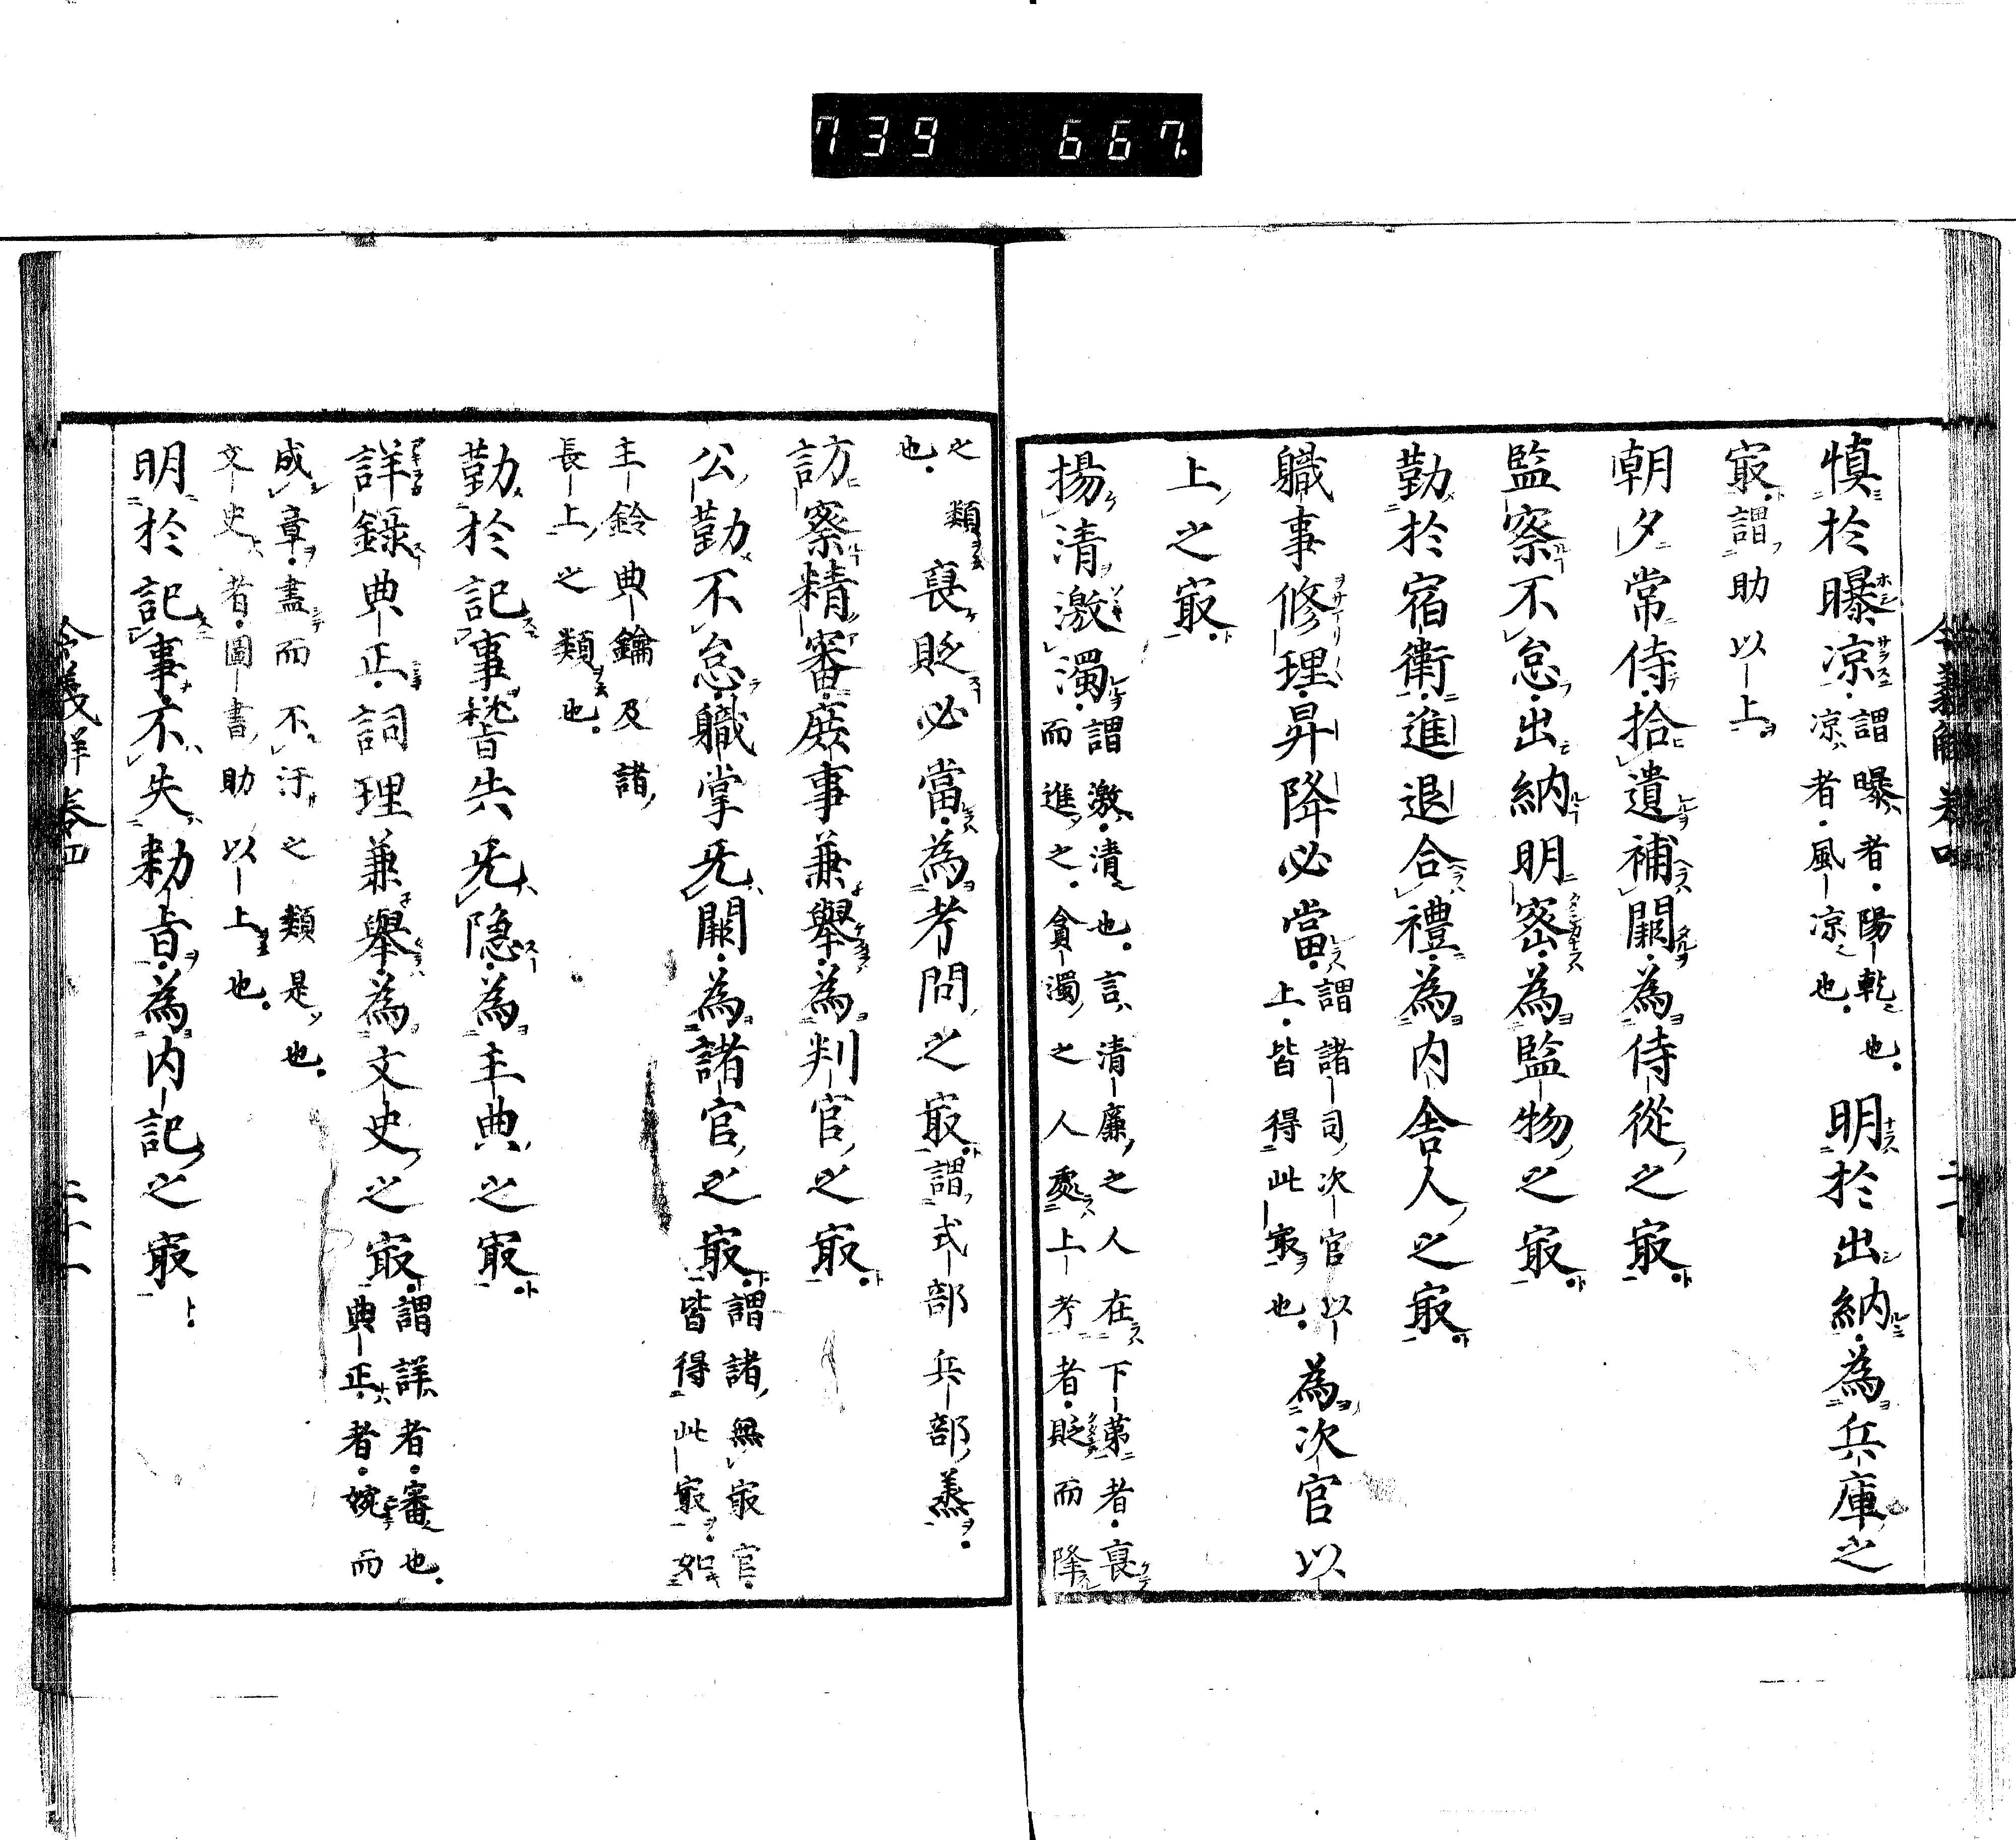 739 667
慎於曝凉謂曝者陽乾也凉者風凉也明於出納為兵庫之
㝡謂助以上
朝夕常侍拾遺補闕為侍從之㝡
監察不怠出納明密為監物之㝡
勤於宿衛進退合禮為内舎人之㝡
職事修理昇降必當謂諸司次官以上皆得此㝡也為次官以
上之㝡
揚清激濁謂激清也言清廉之人在下第者襃而進之貪濁之人處上考者貶而降
之類也襃貶必當為考問之㝡謂式部兵部丞
訪察精審庶事兼舉為判官之㝡
公勤不怠職掌无闕為諸官之㝡謂諸無㝡官皆得此㝡
主鈴典鑰及諸長上之類也
勤於記事稽失无隠為主典之㝡
詳録典正詞理兼舉為文史之㝡謂詳者審也典正者婉而
成章盡而不汙之類是也
文史者圖書助以上也
明於記事不失勅旨為内記之㝡
令義解卷四